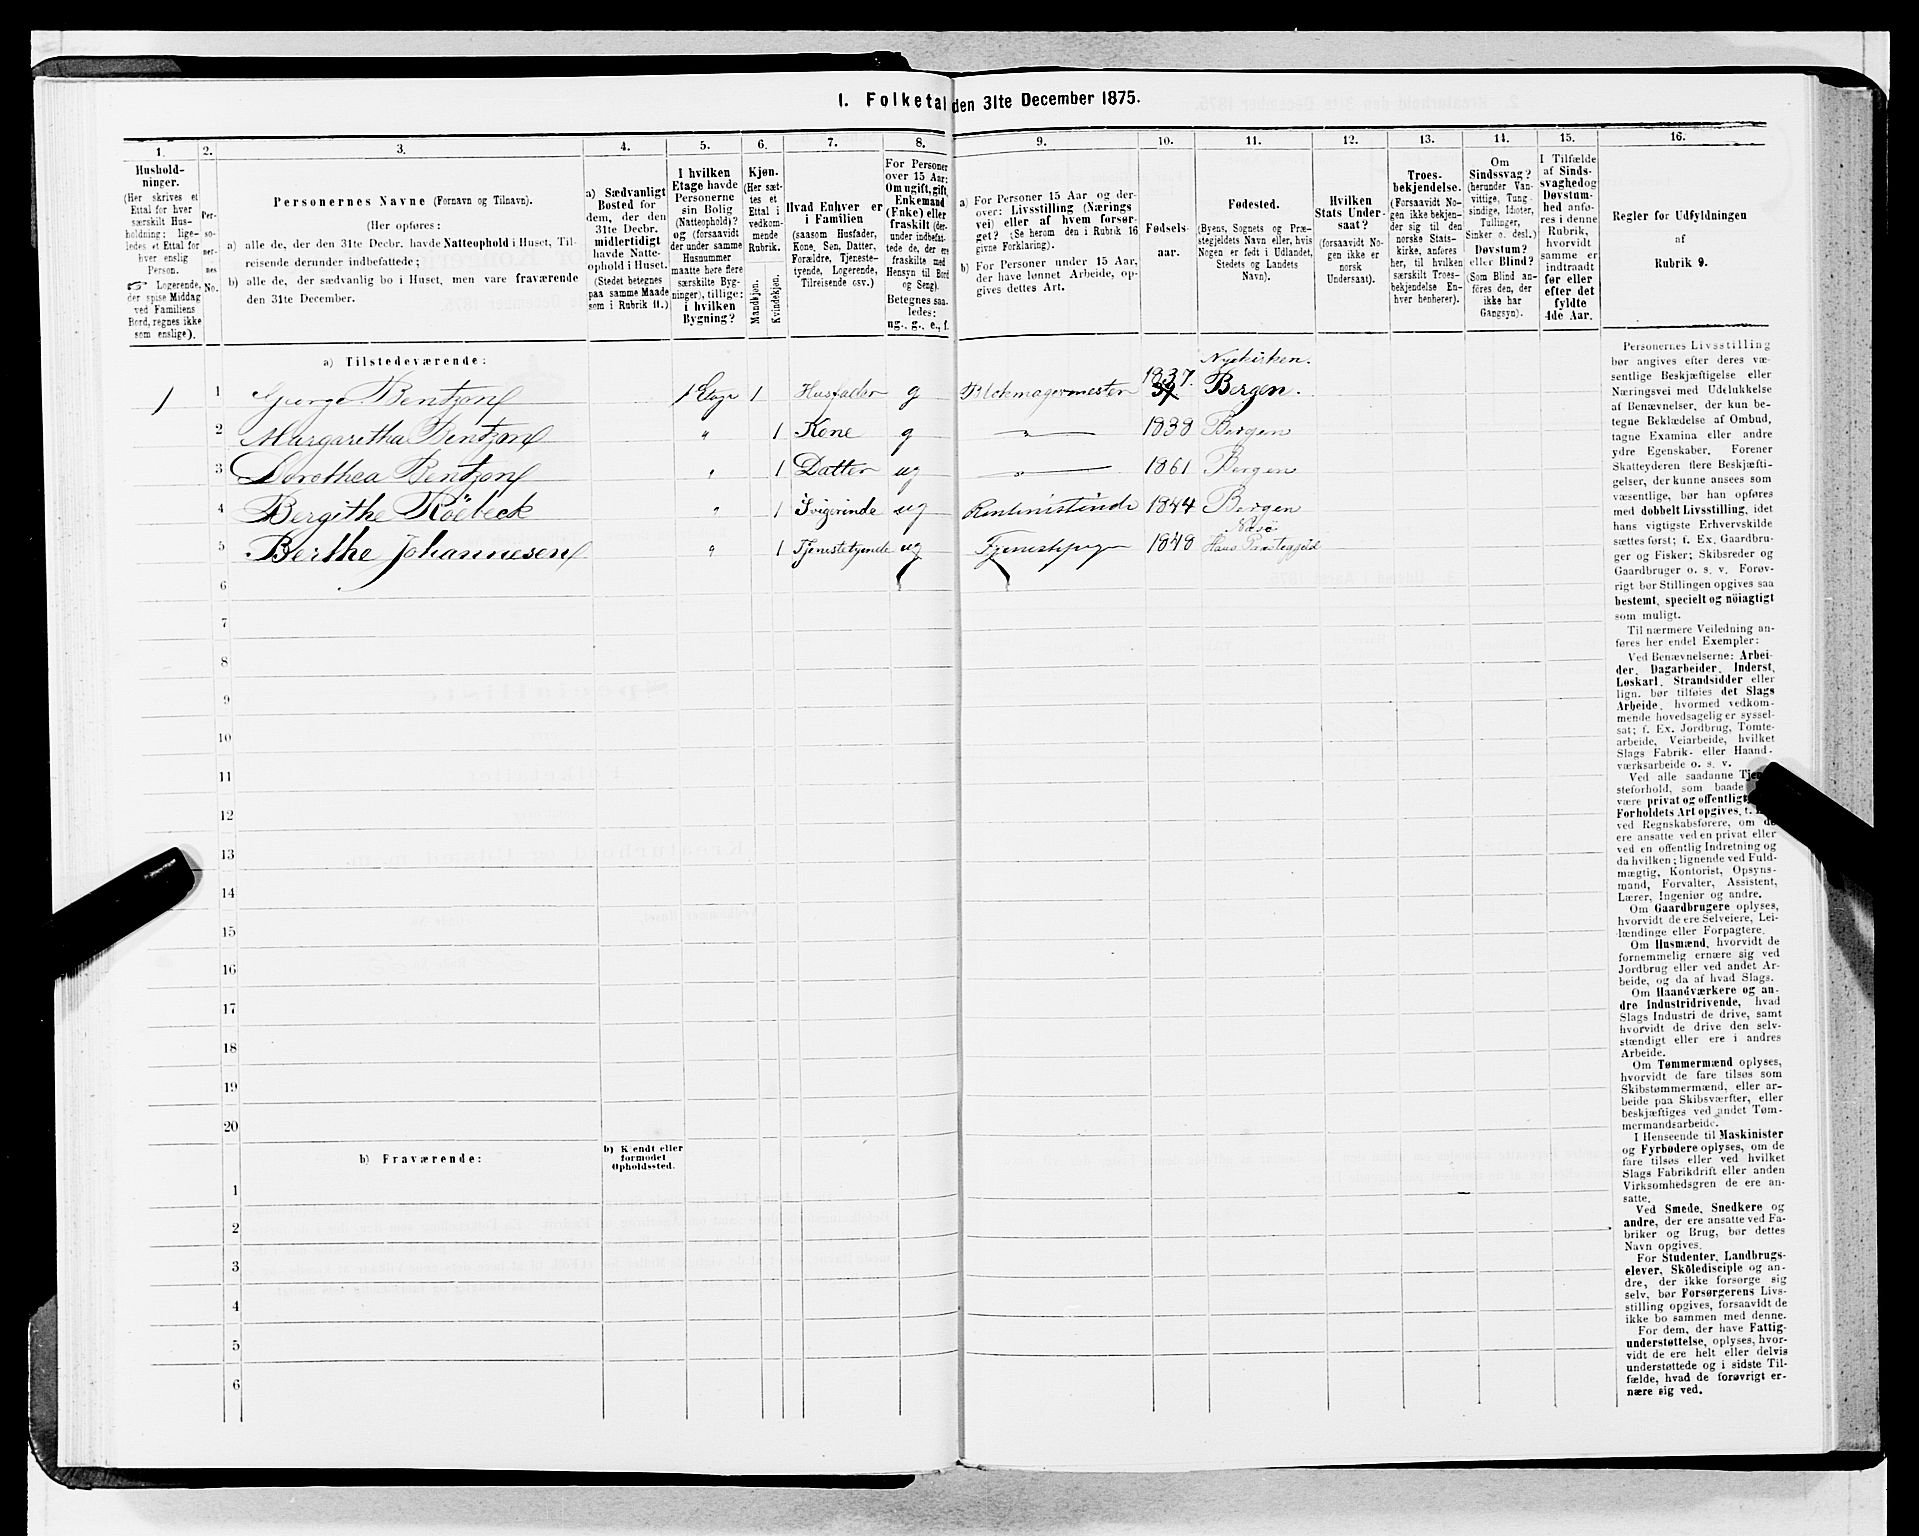 1. Folketal den 31te December 1875.
1.
Hushold-
ninger.
(Her skrives et
Ettal for hver
særskilt Hus-
holdning; lige-
ledes et Ettal for
hver enslig
Person.
☞ Logerende,
der spise Middag
ved Familiens
Bord, regnes ikke
som enslige).
2.
Per-
so-
ner-
nes
No.
3.
Personernes Navne (Fornavn og Tilnavn).
(Her opføres:
a) alle de, der den 31te Decbr. havde Natteophold i Huset, Til-
reisende derunder indbefattede;
b) alle de, der sædvanlig bo i Huset, men vare fraværende
den 31te December.
4.
a) Sædvanligt
Bosted for
dem, der den
31te Decbr.
midlertidigt
havde Natte-
ophold i Huset.
(Stedet betegnes
paa samme Maade
som i Rubrik 11.)
5.
I hvilken
Etage havde
Personerne
sin Bolig
(Natteophold)?
og (forsaavidt
der under samme
Husnummer
maatte høre flere
særskilte Byg-
ninger), tillige:
i hvilken
Bygning?
6.
Kjøn.
(Her sæt-
tes et
Ettal i
vedkom-
mende
Rubrik.
Mandkjøn.
Kvindekjøn.
7.
Hvad Enhver er
i Familien
(saasom Husfader,
Kone, Søn, Datter,
Forældre, Tjeneste-
tyende, Logerende,
Tilreisende osv.)
8.
For Personer
over 15 Aar:
Om ugift, gift,
Enkemand
(Enke) eller
fraskilt (der-
under indbefat-
tede de, der ere
fraskilte med
Hensyn til Bord
og Seng).
Betegnes saa-
ledes:
ug., g., e., f.
9.
a) For Personer 15 Aar og der-
over: Livsstilling (Nærings
vei) eller af hvem forsør-
get? (Se herom den i Rubrik 16
givne Forklaring).
b) For Personer under 15 Aar,
der have lønnet Arbeide, op-
gives dettes Art.
10.
Fødsels-
aar.
11.
Fødested.
(Byens, Sognets og Præ-
stegjeldets Navn eller, hvis
Nogen er født i Udlandet,
Stedets og Landets
Navn).
12.
Hvilken
Stats Under-
saat?
(forsaavidt No-
gen ikke er
norsk
Undersaat).
13.
Troes-
bekjendelse.
(Forsaavidt No-
gen ikke bekjen-
der sig til den
norske Stats-
kirke, anføres
her, til hvilken
særskilt Troes-
bekjendelse En-
hver henhører).
14.
Om
Sindssvag?
(herunder Van-
vittige, Tung-
sindige, Idioter,
Tullinger,
Sinker o. desl.)
Døvstum?
eller Blind?
(Som Blind an-
föres den, der
ikke har
Gangsyn).
15.
I Tilfælde
af Sinds-
svaghed og
Døvstum-
hed anfø-
res i denne
Rubrik,
hvorvidt
samme er
indtraadt
før eller
efter det
fyldte
4de Aar.
16.
Regler for Udfyldningen
af
Rubrik 9.
a) Tilstedeværende:
Nyekirken.
1 1 George Bentzon 1 Etage 1 Husfader g Blokmagermester 1837. Bergen.
2 Margaretha Bentzon " 1 Kone g " 1838 Bergen
3 Dorothea Bentzon " 1 Datter ug " 1861 Bergen
4 Bergithe Röebeck " 1 Svigerinde ug Rentenistinde 1844 Bergen
5 Berthe Johannesen " 1 Tjenestetyende ug Tjenestepige 1848 Haus Præstegjeld
6
7
8
9
10
11
12
13
14
15
16
17
18
19
20
b) Fraværende:
b) Kjendt eller
formodet
Opholdssted.
1
2
3
4
5
6
Personernes Livsstilling
bør angives efter deres væ-
sentlige Beskjæftigelse eller
Næringsvei med Udelukkelse
af Benævnelser, der kun be-
tegne Beklædelse af Ombud,
tagne Examina eller andre
ydre Egenskaber. Forener
Skatteyderen flere Beskjæfti-
gelser, der kunne ansees som
væsentlige, bør han opføres
med dobbelt Livsstilling, idet
hans vigtigste Erhvervskilde
sættes først; f. Ex. Gaardbru-
ger og Fisker; Skibsreder og
Gaardbruger o. s. v. Forøv-
rigt bør Stillingen opgives saa
bestemt, specielt og nöiagtigt
som muligt.
Til nærmere Veiledning an-
føres her endel Exempler:
Ved Benævnelserne: Arbei-
der, Dagarbeider, Inderst,
Løskarl, Strandsidder eller
lign. bør tilføies det Slags
Arbeide, hvormed vedkom-
mende hovedsagelig er syssel-
sat; f. Ex. Jordbrug, Tomte-
arbeide, Veiarbeide, hvilket
Slags Fabrik- eller Haand-
værksarbeide o. s. v.
Ved alle saadanne
steforhold, som baade
være privat og offentligt,
Forholdets Art opgives, f.
ved Regnskabsførere, om de
ere ansatte ved en privat eller
ved en offentlig Indretning og
da hvilken; lignende ved Fuld-
mægtig, Kontorist, Opsyns-
mand, Forvalter, Assistent,
Lærer, Ingeniør og andre.
Om Gaardbrugere oplyses,
hvorvidt de ere Selveiere, Lei-
lændinge eller Forpagtere.
Om Husmænd, hvorvidt de
fornemmelig ernære sig ved
Jordbrug eller ved andet Ar-
beide, og da af hvad Slags.
Om Haandværkere og an-
dre Industridrivende, hvad
Slags Industri de drive, samt
hvorvidt de drive den selv-
stændigt eller ere i andres
Arbeide.
Om Tømmermænd oplyses,
hvorvidt de fare tilsøs som
Skibstømmermænd, eller ar-
beide paa Skibsværfter, eller
beskjæftiges ved andet Tøm-
mermandsarbeide.
I Henseende til Maskinister
og Fyrbødere oplyses, om de
fare tilsøs eller ved hvilket
Slags Fabrikdrift eller anden
Virksomhedsgren de ere an-
satte.
Ved Smede, Snedkere og
andre, der ere ansatte ved Fa-
briker og Brug, bør dettes
Navn opgives.
For Studenter, Landbrugs-
elever, Skoledisciple og an-
dre, der ikke forsørge sig
selv, bør Forsørgerens Livs-
stilling opgives, forsaavidt de
ikke bo sammen med denne.
For dem, der have Fattig-
understøttelse, oplyses, hvor-
vidt de ere helt eller delvis
understøttede og i sidste Til-
fælde, hvad de forøvrigt er-
nære sig ved.